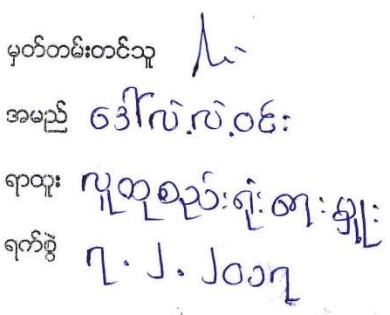 မှတ်တမ်းတင်သူ
အမည် ဒေါ်လဲ့လဲ့ဝင်း
ရာထူး လူထုစည်းရုံးရေးမှူး
ရက်စွဲ ၇.၂.၂၀၁၇